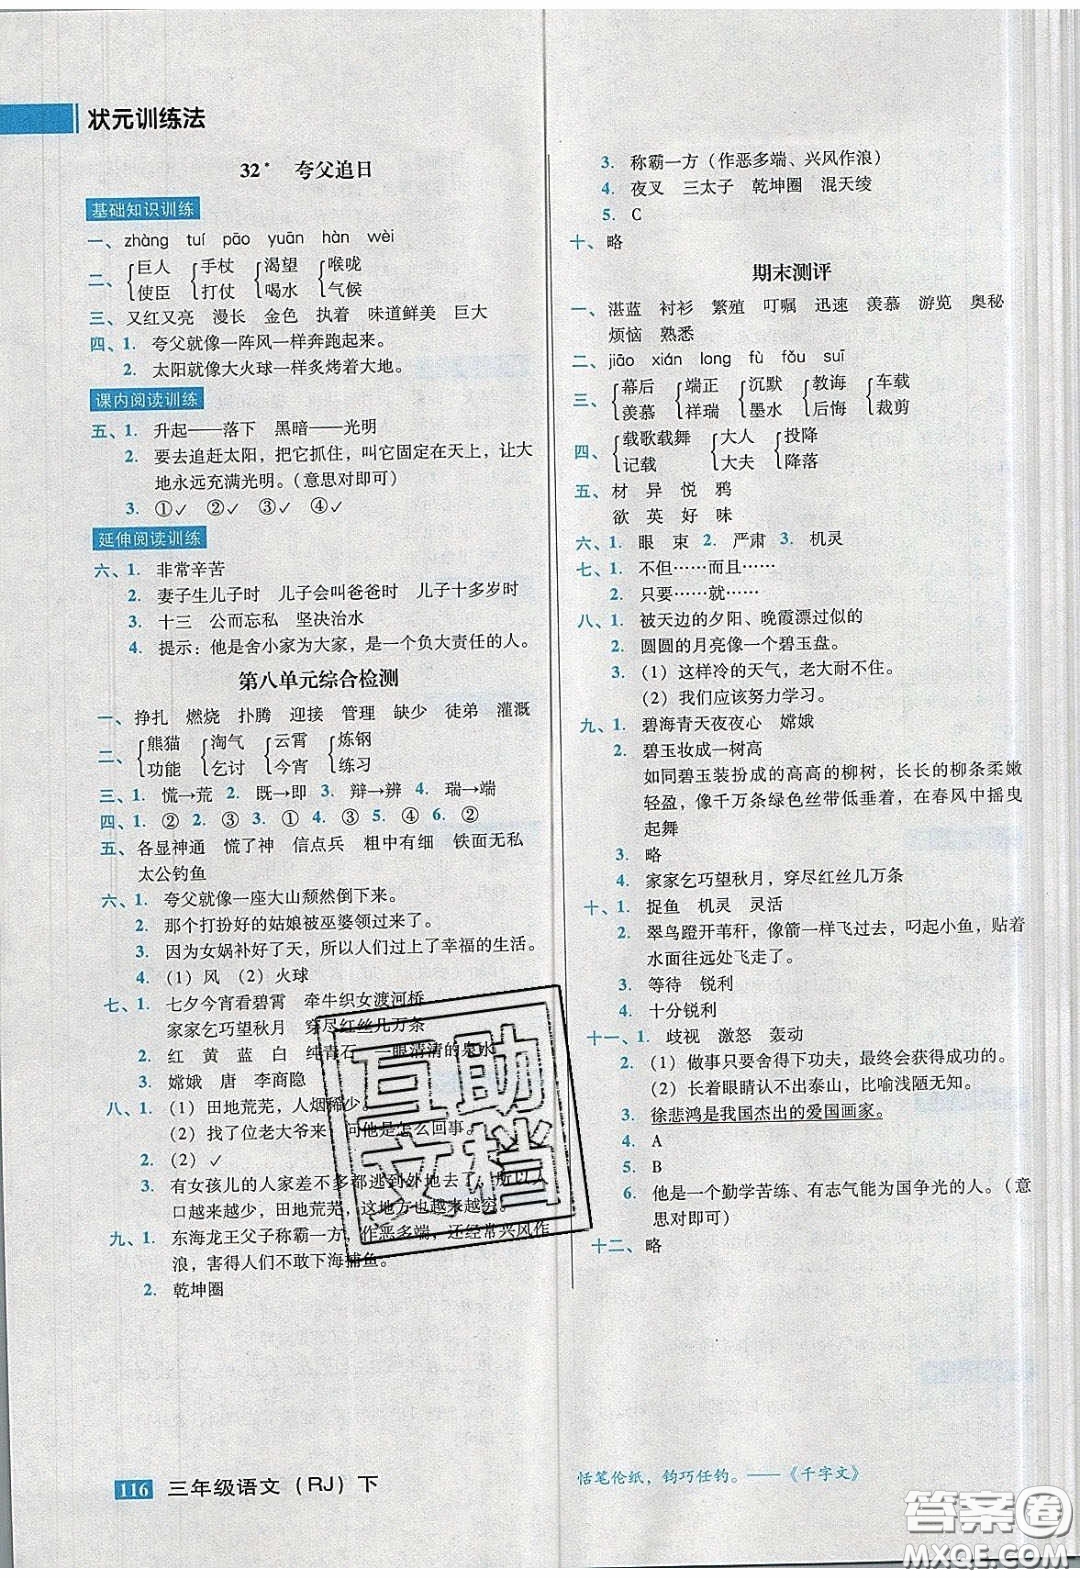 状元训练法
32* 夸父追日
基础知识训练
一、zhàng tuí pāo yuān hàn wèi
二、{巨人 使臣 {手杖 打仗 {渴望 喝水 {喉咙 气候
三、又红又亮 漫长 金色 执着 味道鲜美 巨大
四、1. 夸父就像一阵风一样奔跑起来。
2. 太阳就像大火球一样炙烤着大地。
课内阅读训练
五、1. 升起——落下 黑暗——光明
2. 要去追赶太阳，把它抓住，叫它固定在天上，让大
地永远充满光明。（意思对即可）
3. ①✓ ②✓ ③✓ ④✓
延伸阅读训练
六、1. 非常辛苦
2. 妻子生儿子时 儿子会叫爸爸时 儿子十多岁时
3. 十三 公而忘私 坚决治水
4. 提示：他是舍小家为大家，是一个负大责任的人。
第八单元综合检测
一、挣扎 燃烧 扑腾 迎接 管理 缺少 徒弟 灌溉
二、{熊猫 功能 {淘气 乞讨 {云霄 今宵 {炼钢 练习
三、1. 慌→荒 2. 既→即 3. 辩→辨 4. 瑞→端
四、1. ② 2. ③ 3. ① 4. ③ 5. ④ 6. ②
五、各显神通 慌了神 信点兵 粗中有细 铁面无私
太公钓鱼
六、1. 夸父就像一座大山颓然倒下来。
2. 那个打扮好的姑娘被巫婆领过来了。
3. 因为女娲补好了天，所以人们过上了幸福的生活。
4. （1）风 （2）火球
七、1. 七夕今宵看碧霄 牵牛织女渡河桥
家家乞巧望秋月 穿尽红丝几万条
2. 红 黄 蓝 白 纯青石 一眼清清的泉水
3. 嫦娥 唐 李商隐
八、1. （1）田地荒芜，人烟稀少。
（2）找了位老大爷来 问他是怎么回事。
2. （2）✓
3. 有女孩儿的人家差不多都逃到外地去了，所以人
口越来越少，田地荒芜，这地方也越来越穷。
九、1. 东海龙王父子称霸一方，作恶多端，还经常兴风作
浪，害得人们不敢下海捕鱼。
2. 乾坤圈
3. 称霸一方（作恶多端、兴风作浪）
4. 夜叉 三太子 乾坤圈 混天绫
5. C
十、略
期末测评
一、湛蓝 衬衫 繁殖 叮嘱 迅速 羡慕 游览 奥秘
烦恼 熟悉
二、jiāo xián long fù fǒu suī
三、{幕后 羡慕 {端正 祥瑞 {沉默 墨水 {教诲 后悔 {车载 裁剪
四、{载歌载舞 记载 {大人 大夫 {投降 降落
五、材 异 悦 鸦
欲 英 好 味
六、1. 眼 束 2. 严肃 3. 机灵
七、1. 不但……而且……
2. 只要……就……
八、1. 被天边的夕阳、晚霞漂过似的
2. 圆圆的月亮像一个碧玉盘。
3. （1）这样冷的天气，老大耐不住。
（2）我们应该努力学习。
九、1. 碧海青天夜夜心 嫦娥
2. 碧玉妆成一树高
如同碧玉装扮成的高高的柳树，长长的柳条柔嫩
轻盈，像千万条绿色丝带低垂着，在春风中摇曳
起舞
3. 略
4. 家家乞巧望秋月，穿尽红丝几万条
十、1. 捉鱼 机灵 灵活
2. 翠鸟蹬开苇秆，像箭一样飞过去，叼起小鱼，贴着
水面往远处飞走了。
3. 等待 锐利
4. 十分锐利
十一、1. 歧视 激怒 轰动
2. （1）做事只要舍得下功夫，最终会获得成功的。
（2）长着眼睛认不出泰山，比喻浅陋无知。
3. 徐悲鸿是我国杰出的爱国画家。
4. A
5. B
6. 他是一个勤学苦练、有志气能为国争光的人。（意
思对即可）
十二、略
互助
文档
116 三年级语文（RJ）下
恬笔伦纸，钧巧任钓。——《千字文》
答案圈
MXQE.COM